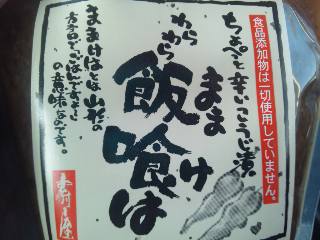 食品添加物は一切使用していません。
ちょぺっと辛いこうじ漬
わらわら
まま
飯喰け
け
は
ままけはとは山形の
方言で「ごはんですよ」
の意味なのです。